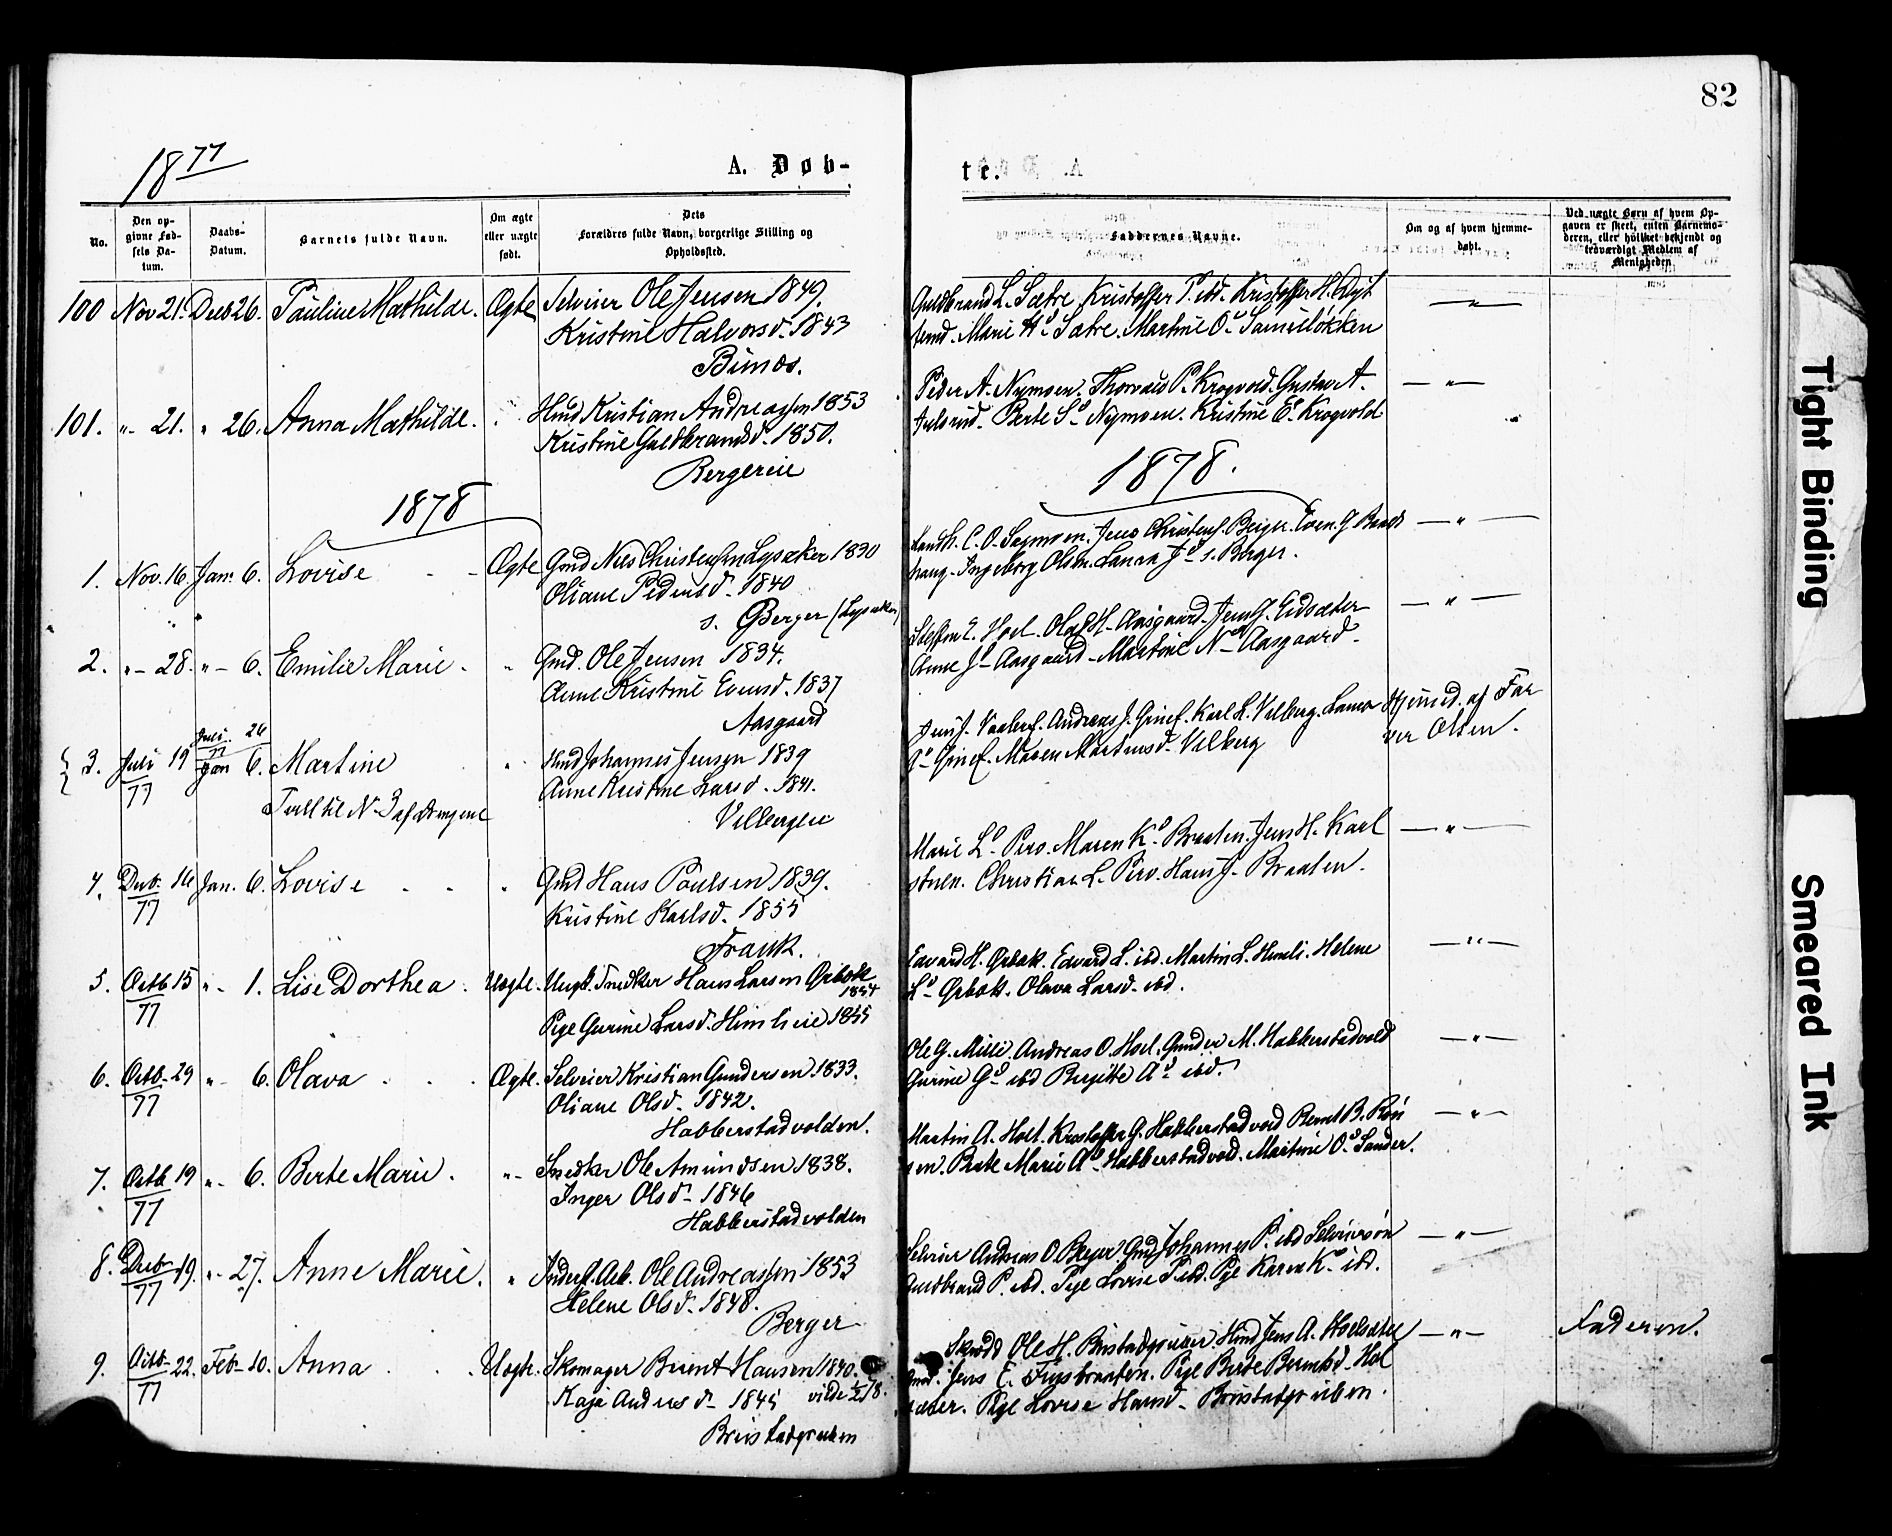 82
1877
A. Døb-
te.
No.
Den op-
givne Fød-
sels Da-
tum.
Daabs-
Datum.
Barnets fulde Navn.
Om ægte
eller uægte
født.
Dets
Forældres fulde Navn, borgerlige Stilling og
Opholdssted.
Faddernes Navne.
Om og af hvem hjemme-
døbt.
Ved uægte Børn af hvem Op-
gaven er skeet, enten Barnemo-
deren, eller hvilket bekjendt og
troværdigt Medlem af
Menigheden
100 Nov 21. Decb 26. Pauline Mathilde. Ægte Selveier Ole Jensen 1849.
Kristine Halvorsd. 1843
Guldbrand L. Sætre, Kristoffer P. ibd. Kristoffer H.
Marie Hd. Sætre. Martine Od.
101. „- 21. „ 26. Anna Mathilde. Hmd Kristian Andreassen 1853
Kristine Guldbrandsd. 1850.
Bergereie
Peder A. Nymoen. Thorvald P. Krogvold. Gustav A.
Julsrud. Berte Sd. Nymoen. Kristine Ed. Krogvold
1878
1878.
1. Nov. 16. Jan. 6. Lovise Ægte Gmd Nils Christensen Lysaker 1830
Oliane Pedersd. 1840
s. Berger (Lysaker)
C. O. Jens Christens. Berger. Even G.
Ingeborg Olsen. Laura Jd. s. Berger.
2. „- 28. „- 6. Emilie Marie. „ Gmd. Ole Jensen 1834.
Anne Kristine Evensd. 1837
Aasgaard
Steffen E. Hoel. Olaf H. Aasgaard. Jens G. Eidsæter
Anne Jd. Aasgaard. Martine Nd. Aasgaard.
3. Juli 19
77
Juli. 26
77
Jan 6. Martine „ Hmd Johannes Jensen 1839
Anne Kristine Larsd. 1841.
Tvill til No 3 af Drengene
Vilbergeie
Andreas J. Karl L. Vilberg.
Maren Martinsd. Vilberg
Hjemmed. af Far
ver Olsen.
4. Decb. 16
77
Jan. 6. Lovise „ Gmd Hans Paulsen 1839.
Kristine Karlsd. 1855
Frank.
Marie Ld. Piro. Maren Kd. Braaten. Jens H. Karl
Christian L. Piro. Hans J. Braaten.
5. Octb 15
77
„- 1. Lise Dorthea. Uægte. Ungk. Snedker Hans Larsen Ørbæk
1854
Pige Gurine Larsd. Himlieie 1855
Edvard H. Ørbæk. Edvard L. ibd. Martin L. Himli. Helene
Ld. Ørbæk. Olava Larsd. ibd.
6. Octb. 29
77
„- 6. Olava Ægte. Selveier Kristian Gundersen 1833.
Oliane Olsd. 1842.
Habberstadvolden.
Ole G. Milli. Andreas O. Hoel. Gunder M. Habberstadvold
Gurine Gd. ibd Birgitte Ad. ibd.
7. Octb 19
77
„- 6. Berte Marie. „- Snedker Ole Amundsen 1838.
Inger Olsd. 1846
Habberstadvolden
Martin A. Holt. Kristoffer G. Habberstadvold Bernt B.
Berte Marie Ad. Habberstadvold. Martine Od.
8. Decb 19.
77
„- 27. Anne Marie. „ Inderst. Arb. Ole Andreassen 1853
Helene Olsd. 1848.
Berger
Selveier Andreas O Berger Gmd Johannes P. ibd Selveiersøn
Guldbrand P. ibd. Pige Lovise P ibd. Pige Karen Kd. ibd.
9. Octb. 22.
77
Feb. 10. Anna Uægte. Skomager Bernt Hansen 1840.
Kaja Andresd. 1845
Ole H. Hmd Jens A.
Jens E. Pige Berte Berntsd.
Pige Lovise Hansd.
Faderen.
Tight Binding
Smeared Ink